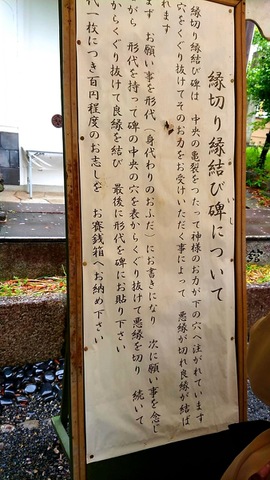 縁切り縁結び碑について
いし
縁切り縁結び碑は 中央の亀裂をつたって神様のお力が下の穴へ注がれています
穴をくぐり抜けてそのお力をお受けいただく事によって 悪縁が切れ良縁が結ば
れます
まず お願い事を形代(身代わりのおふだ)にお書きになり 次に願い事を念じ
がら 形代を持って碑の中央の穴を表からくぐり抜けて悪縁を切り 続いて
からくぐり抜けて良縁を結び 最後に形代を碑にお貼り下さい
代一枚につき百円程度のお志しを お賽銭箱へお納め下さい